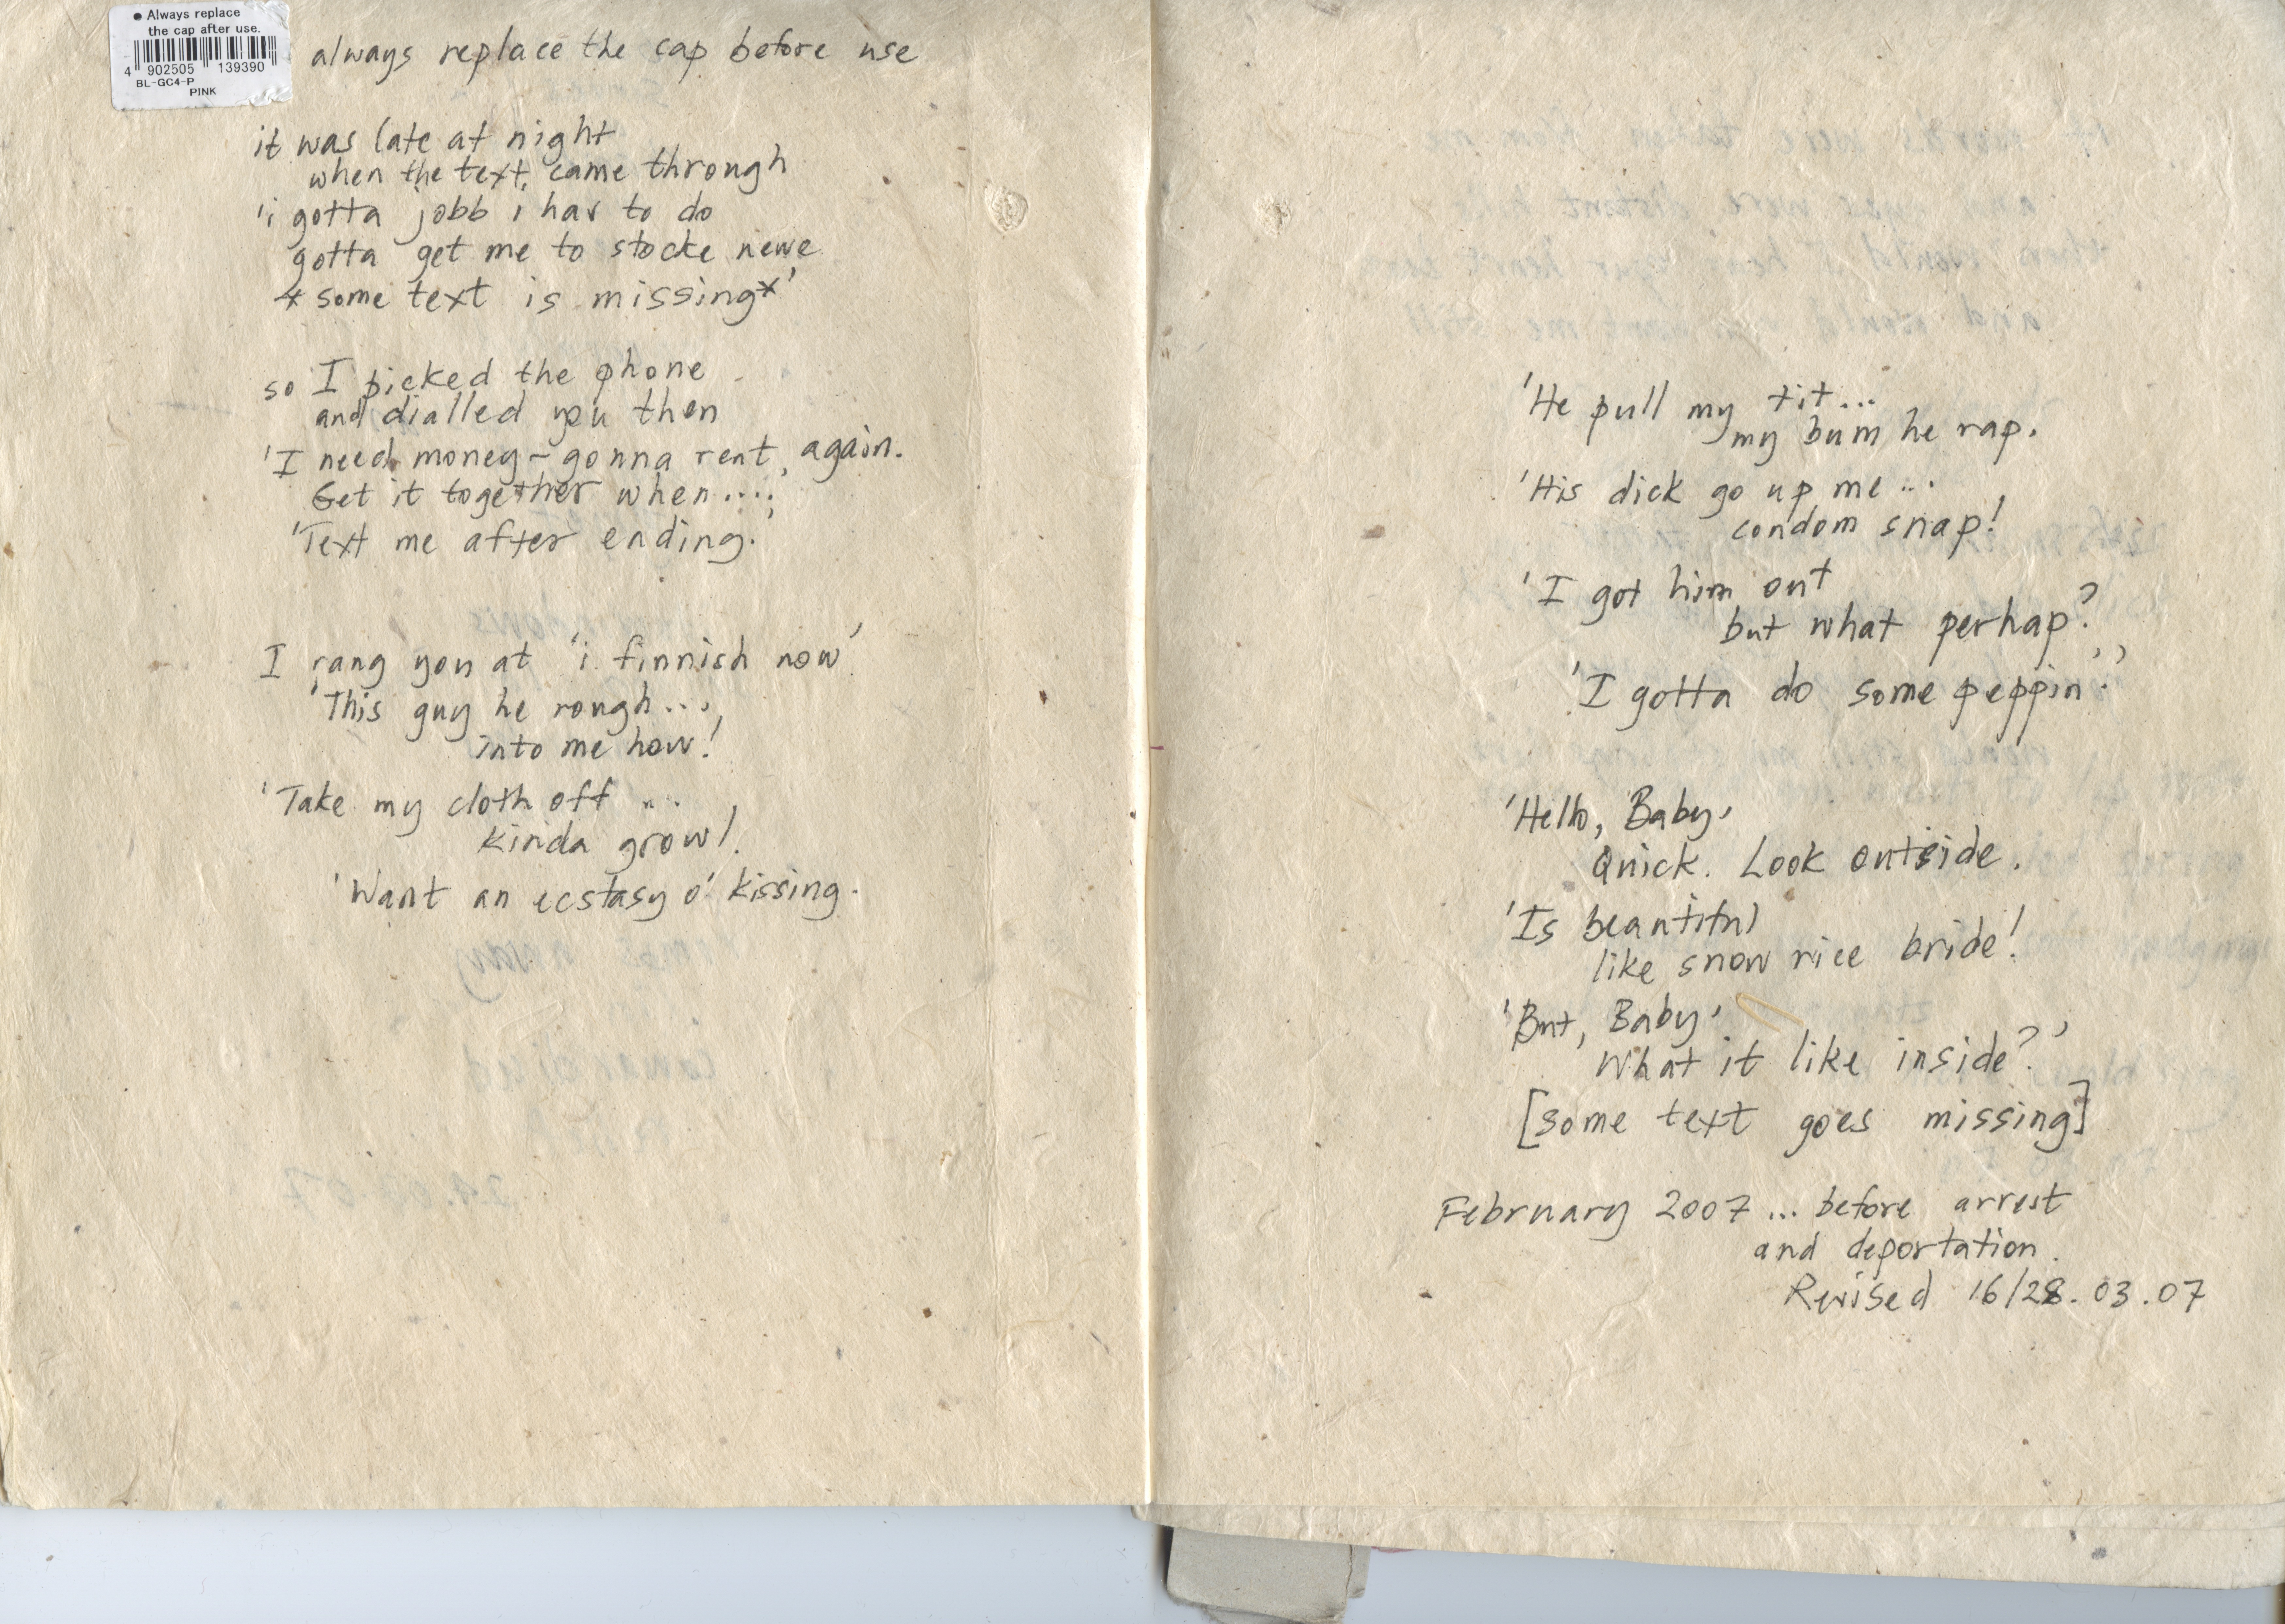 ● Always replace
the cap after use.
4 902505 139390
BL-GC4-P
PINK
always replace the cap before use
it was late at night
when the text came through
'i gotta jobb i hav to do
gotta get me to stocke newe
* some text is missing*'
so I picked the phone
and dialled you then
'I need money - gonna rent, again.
Get it together when....'
'Text me after ending.'
I rang you at 'i finnish now'
'This guy he rough...,
into me how!
'Take my cloth off ...
kinda growl.
'Want an ecstasy o' kissing.
'He pull my tit...
my bum he rap.
'His dick go up me ...
condom snap!
'I got him out
but what perhap?
'I gotta do some peppin'.'
'Hello, Baby,
Quick. Look outside.
'Is beautiful
like snow rice bride!
'But, Baby,
What it like inside?'
[some text goes missing]
February 2007 ... before arrest
and deportation.
Revised 16/28.03.07